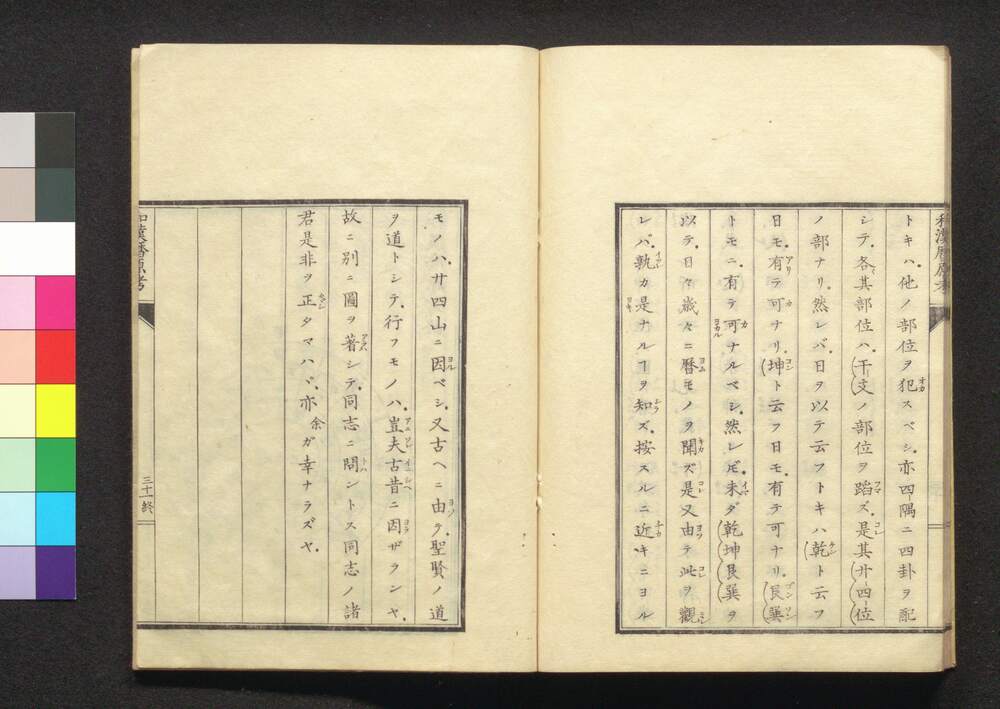 和漢暦原考
トキハ、他ノ部位ヲ犯スベシ、亦四隅ニ四卦ヲ配
シテ、各其部位ハ、干支ノ部位ヲ蹈ズ、是其廿四位
ノ部ナリ、然レバ、日ヲ以テ云フトキハ乾ト云フ
日モ、有テ可ナリ、坤ト云フ日モ、有テ可ナリ、艮巽
トモニ、有テ可ナルベシ、然レ𪜈、未ダ乾坤艮巽ヲ
以テ、日々歳々ニ暦モノヲ聞ズ、是又由テ此ヲ觀
レバ、孰カ是ナルヿヲ知ズ、按スルニ近キニヨル
モノハ、廿四山ニ因ベシ、又古ヘニ由ラ、聖賢ノ道
ヲ道トシテ、行フモノハ、豈夫古昔ニ因ザランヤ、
故ニ別ニ圖ヲ著シテ、同志ニ問ントス同志ノ諸
君是非ヲ正タマハヾ、亦余ガ幸ナラズヤ、
和漢暦原考
三十一終